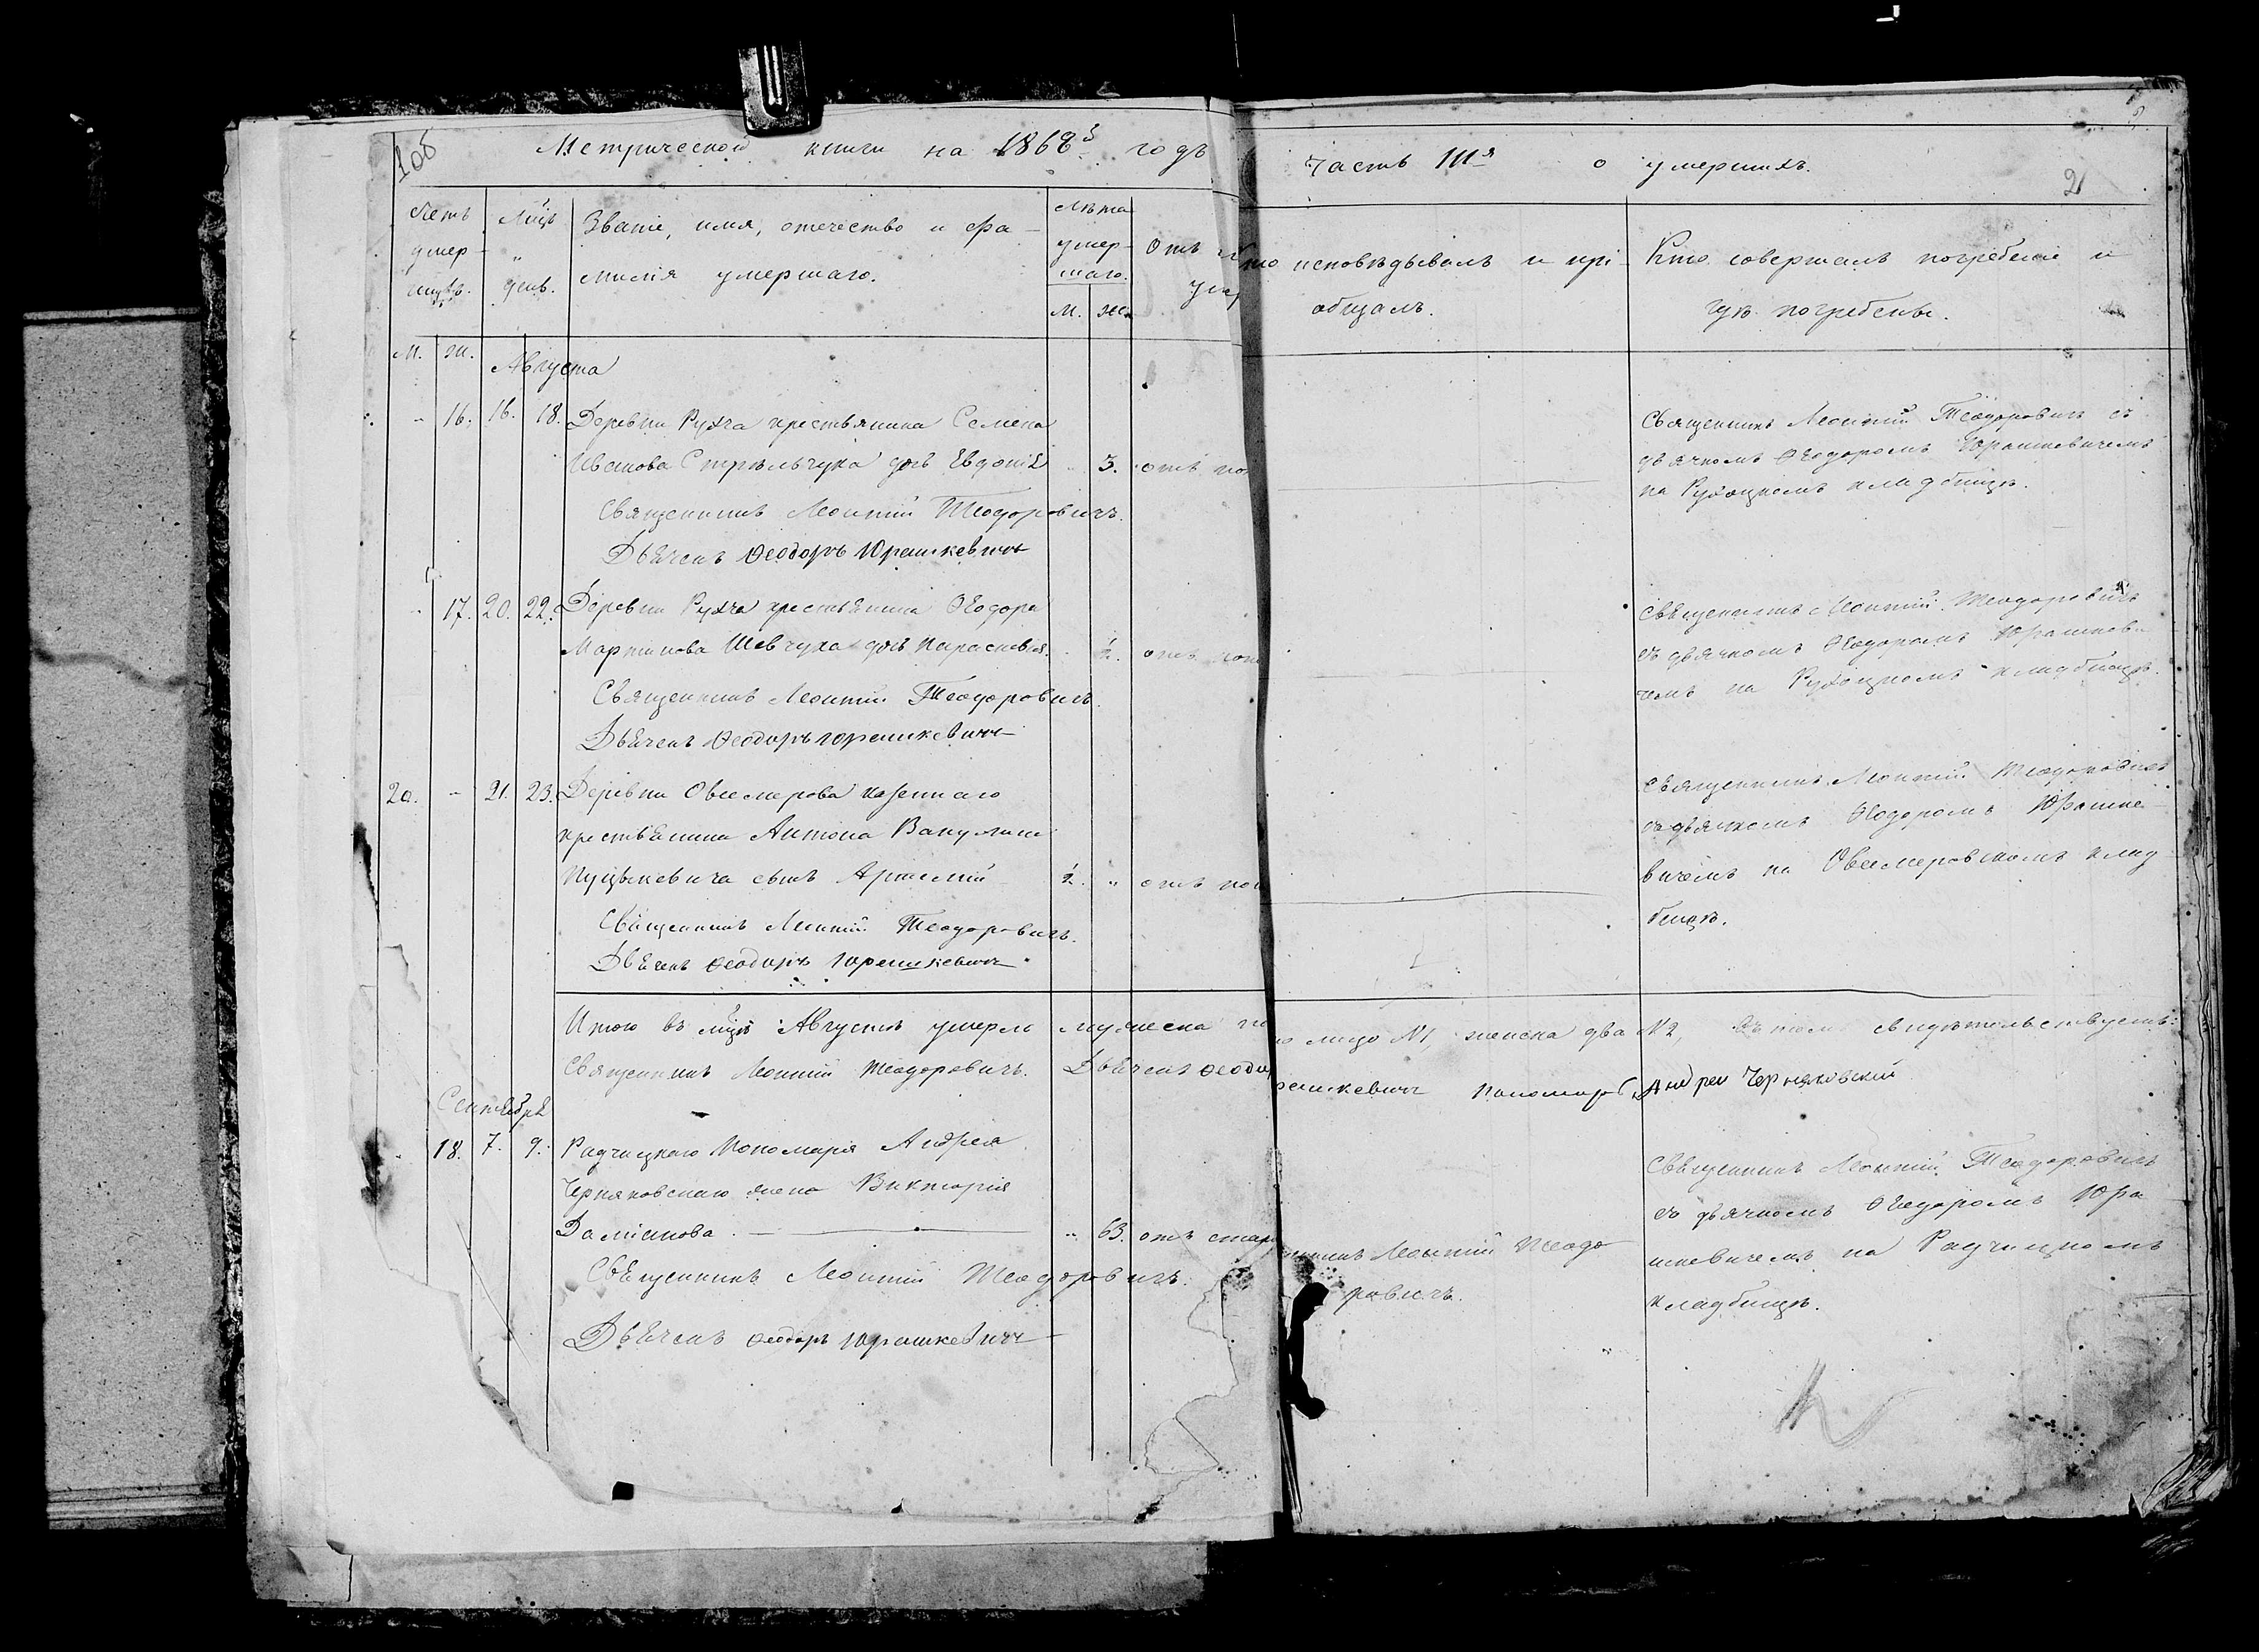 Метрической книги на 1868й годъ
Часть IIIя о умершихъ.
2
Счетъ умершихъ.
Мцъ " день.
Званіе, имя, отечество и фамилія умершаго.
Лѣта умершаго.
М. Ж.
Отъ чего
исповѣдывалъ и прі-
общалъ.
Кто совершалъ погребеніе и
гдѣ погребены.
М. Ж.
Августа
" 16. 16. 18. Деревни Рухча крестьянина Семена
Иванова Стрѣльчука дочь Евдокія " 5. отъ
Священникъ Леонтій Теодоровичъ.
Дьячекъ Ѳеодоръ Юрашкевичъ
Священникъ Леонтій Теодоровичъ съ
дьячкомъ Ѳеодоромъ Юрашкевичемъ
на Рухоцкомъ кладбищѣ.
" 17. 20. 22. Деревни Рухча крестьянина Ѳеодора
Мартинова Шевчука дочь Парасковія. " ½. отъ
Священникъ Леонтій Теодоровичъ.
Дьячекъ Ѳеодоръ Юрашкевичъ
Священникъ Леонтій Теодоровичъ
съ дьячкомъ Ѳеодоромъ Юрашкеви-
чемъ на Рухоцкомъ кладбищѣ.
20. " 21. 23. Деревни Овсемерова казеннаго
крестьянина Антона
сынъ Артемій ½. " отъ
Священникъ Леонтій Теодоровичъ.
Дьячекъ Ѳеодоръ Юрашкевичъ
Священникъ Леонтій Теодоровичъ
съ дьячкомъ Ѳеодоромъ Юрашке-
вичемъ на Овсемеровскомъ клад-
бищѣ.
Итого въ мцѣ Августѣ умерло мужеска
лицо №1, женска два №2, Въ томъ свидѣтельствуемъ:
Священникъ Леонтій Теодоровичъ. Дьячекъ
Пономарь Андрей Черняковскій
Сентября
" 18. 7. 9. Радчицкаго Пономаря Андрея
Черняковскаго жена Викторія
Даміанова. " 63. отъ
Священникъ Леонтій Теодоровичъ.
Дьячекъ Ѳеодоръ Юрашкевичъ
Леонтій Теодо-
ровичъ.
Священникъ Леонтій Теодоровичъ
съ дьячкомъ Ѳеодоромъ Юра-
шкевичемъ на Радчицкомъ
кладбищѣ.